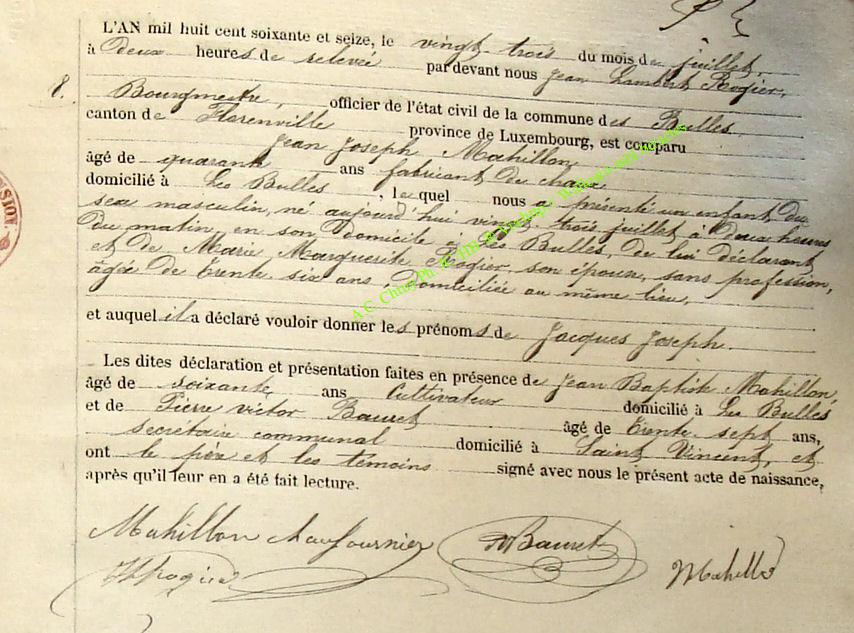 L'AN mil huit cent soixante et seize, le vingt trois du mois de juillet,
à deux heures de relevée par devant nous Jean Lambert Rogier,
8. Bourgmestre, officier de l'état civil de la commune des Bulles
canton de Florenville province de Luxembourg, est comparu
Jean Joseph Mahillon
âgé de quarante ans fabricant de chaux
domicilié à Les Bulles, lequel nous a présenté un enfant du
sexe masculin, né aujourd'hui vingt trois juillet à deux heures
du matin, en son domicile à Les Bulles, de lui déclarant
et de Marie Marguerite Rogier, son épouse, sans profession,
âgée de trente six ans, domiciliée au même lieu,
et auquel il a déclaré vouloir donner les prénoms de Jacques Joseph.
Les dites déclaration et présentation faites en présence de Jean Baptiste Mahillon,
âgé de soixante ans Cultivateur domicilié à Les Bulles
et de Pierre victor Bauret âgé de trente-sept ans,
secrétaire communal domicilié à Saint Vincent, et
ont le père et les témoins signé avec nous le présent acte de naissance,
après qu'il leur en a été fait lecture.
Mahillon chaufournier Bauret Mahillo
Rogier
SION
A.C. Chiny